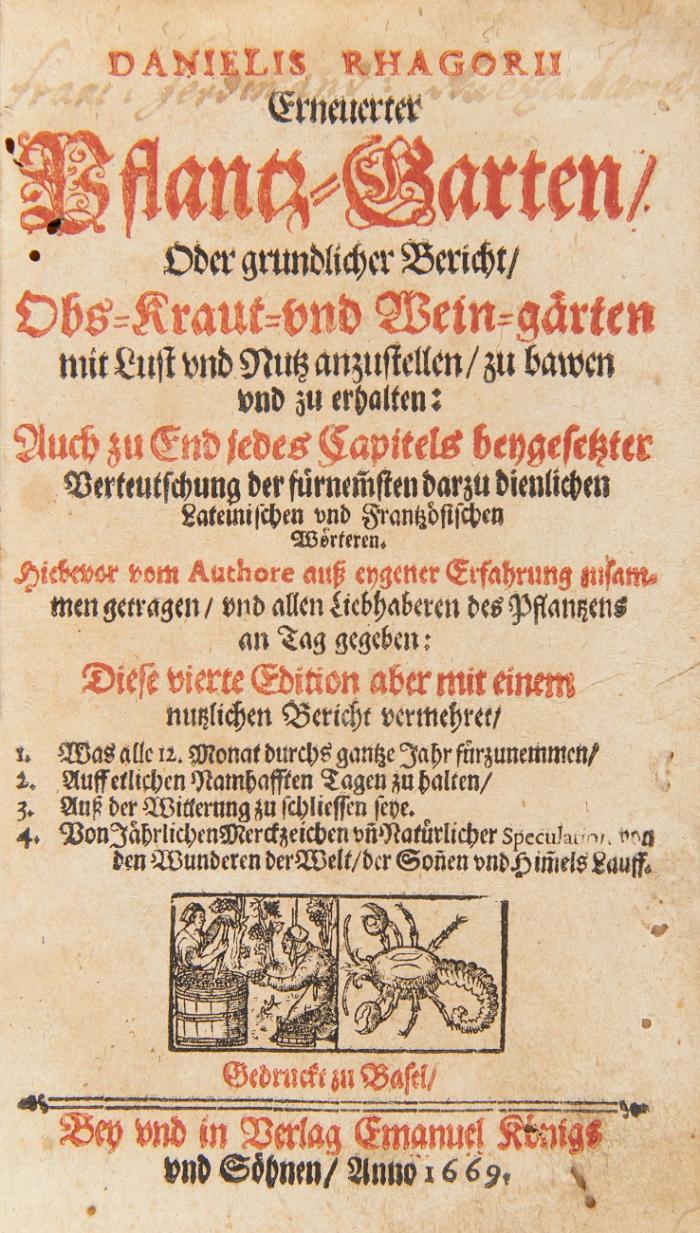 DANIELIS RHAGORII
Erneuerter
Pflantz-Garten/
Oder grundlicher Bericht/
Obs-Kraut-vnd Wein-gärten
mit Lust vnd Nutz anzustellen/ zu bawen
vnd zu erhalten:
Auch zu End jedes Capitels beygesetzter
Verteutschung der fürnem̃sten darzu dienlichen
Lateinischen vnd Frantzösischen
Wörteren.
Hiebevor vom Authore auß eygener Erfahrung zusam-
men getragen/ vnd allen Liebhaberen des Pflantzens
an Tag gegeben:
Diese vierte Edition aber mit einem
nutzlichen Bericht vermehret/
1. Was alle 12. Monat durchs gantze Jahr fürzunemmen/
2. Auff etlichen Namhafften Tagen zu halten/
3. Auß der Witterung zu schliessen seye.
4. Von Jährlichen Merckzeichen vñ Natürlicher Speculation von
den Wunderen der Welt/ der Soñen vnd Him̃els Lauff.
Gedruckt zu Basel/
Bey vnd in Verlag Emanuel Königs
vnd Söhnen/ Anno 1669.